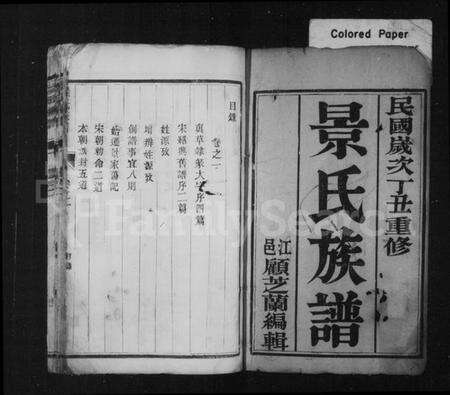 Colored Paper
民國歲次丁丑重修
景氏族譜
江邑顧芝蘭編輯
目錄
卷之一
真草隸篆大字序四篇
宋紹興舊譜序二篇
姓源攷
增辨姓源攷
修譜事宜八則
宋朝勅命二道
本朝勅封五道
FamilySearch